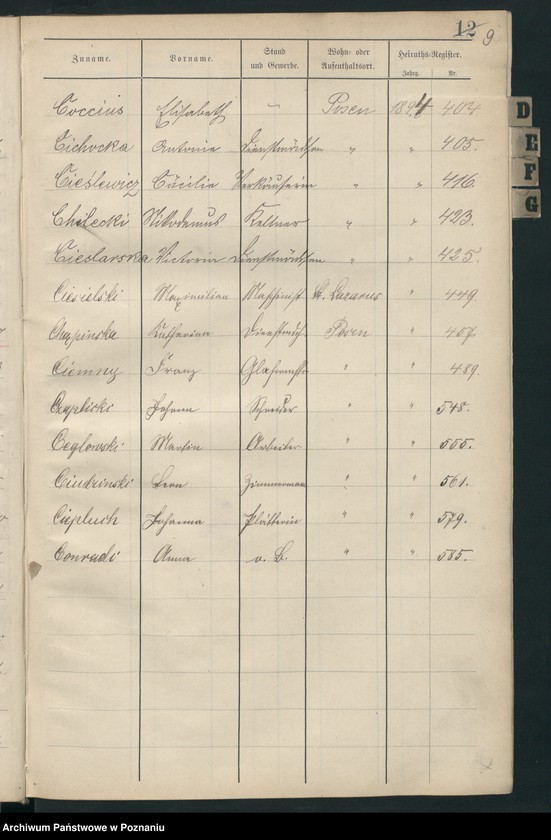 12 9
Zuname. Vorname. Stand und Gewerbe. Wohn- oder Aufenthaltsort. Heiraths-Register.
Jahrg. Nr.
Coccius Elisabeth — Posen 1894 404
Cichocka Antonie Dienstmädchen " " 405.
Cieślewicz Cäcilie Verkäuferin " " 416.
Chilecki Nikodemus Kellner " " 423.
Cieslarska Victoria Dienstmädchen " " 425.
Ciesielski Maximilian Maschinist St. Lazarus " 449.
Czapinska Katharina Posen "
Ciemny Franz " " 489.
Czaplicki Johann Schneider " " 548.
Ceglowski Martin Arbeiter " " 555.
Ciudzinski Leon Zimmermann " " 561.
Ciepluch Johanna Plätterin " " 579.
Conradi Anna o. B. " " 585.
D
E
F
G
Archiwum Państwowe w Poznaniu